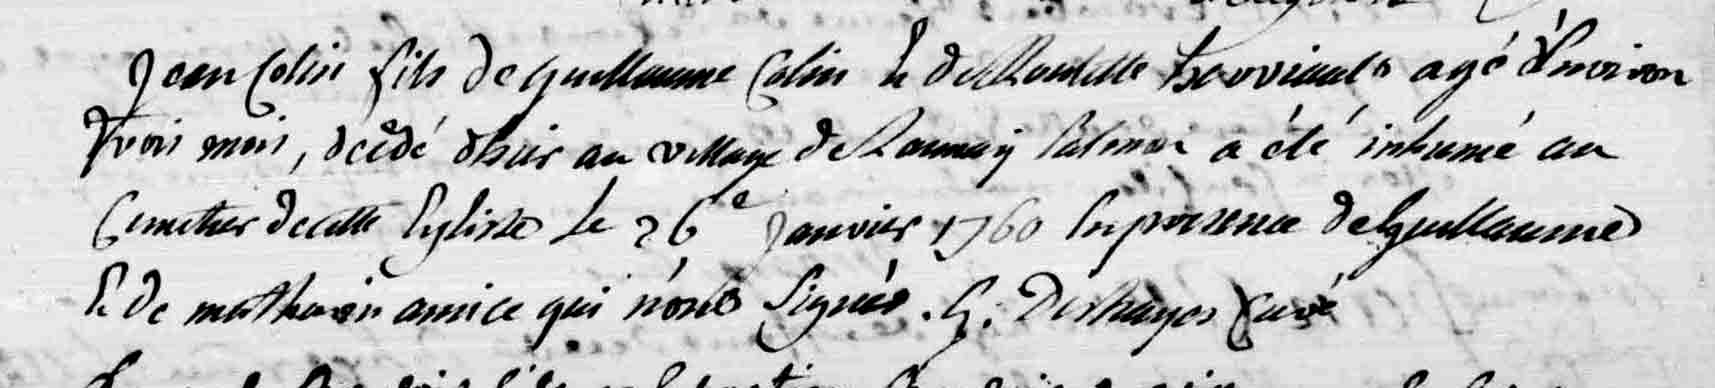 Jean Colin fils de Guillaume Colin Et de agé d'Environ
trois mois, décédé d'hier au village de Launay a été inhumé au
Cemetier de cette Eglise Le 26e Janvier 1760 En presence de Guillaume
Et de mathurin amice qui n'ont Signés. G. Deshayes Curé